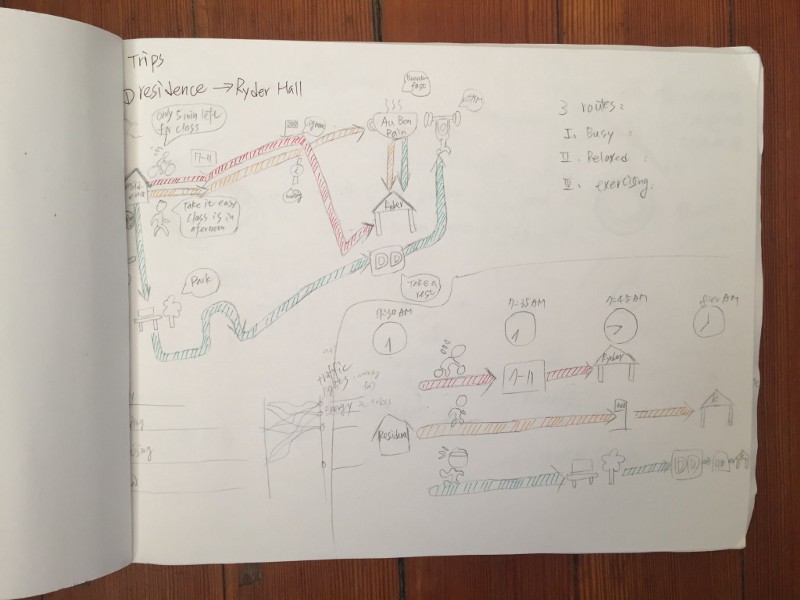 Trips
D residence → Ryder Hall
Only 5 min left
for class
7-11
Au Bon
Pain
GYM
3 routes:
I. Busy
II. Relaxed
III. exercising.
Take it easy
class is in
afternoon
Ryder
Park
DD
TAKE A
REST
7:30 AM
7:35 AM
7:45 AM
traffic
lights
Energy
Resident
7-11
Ryder
R
DD